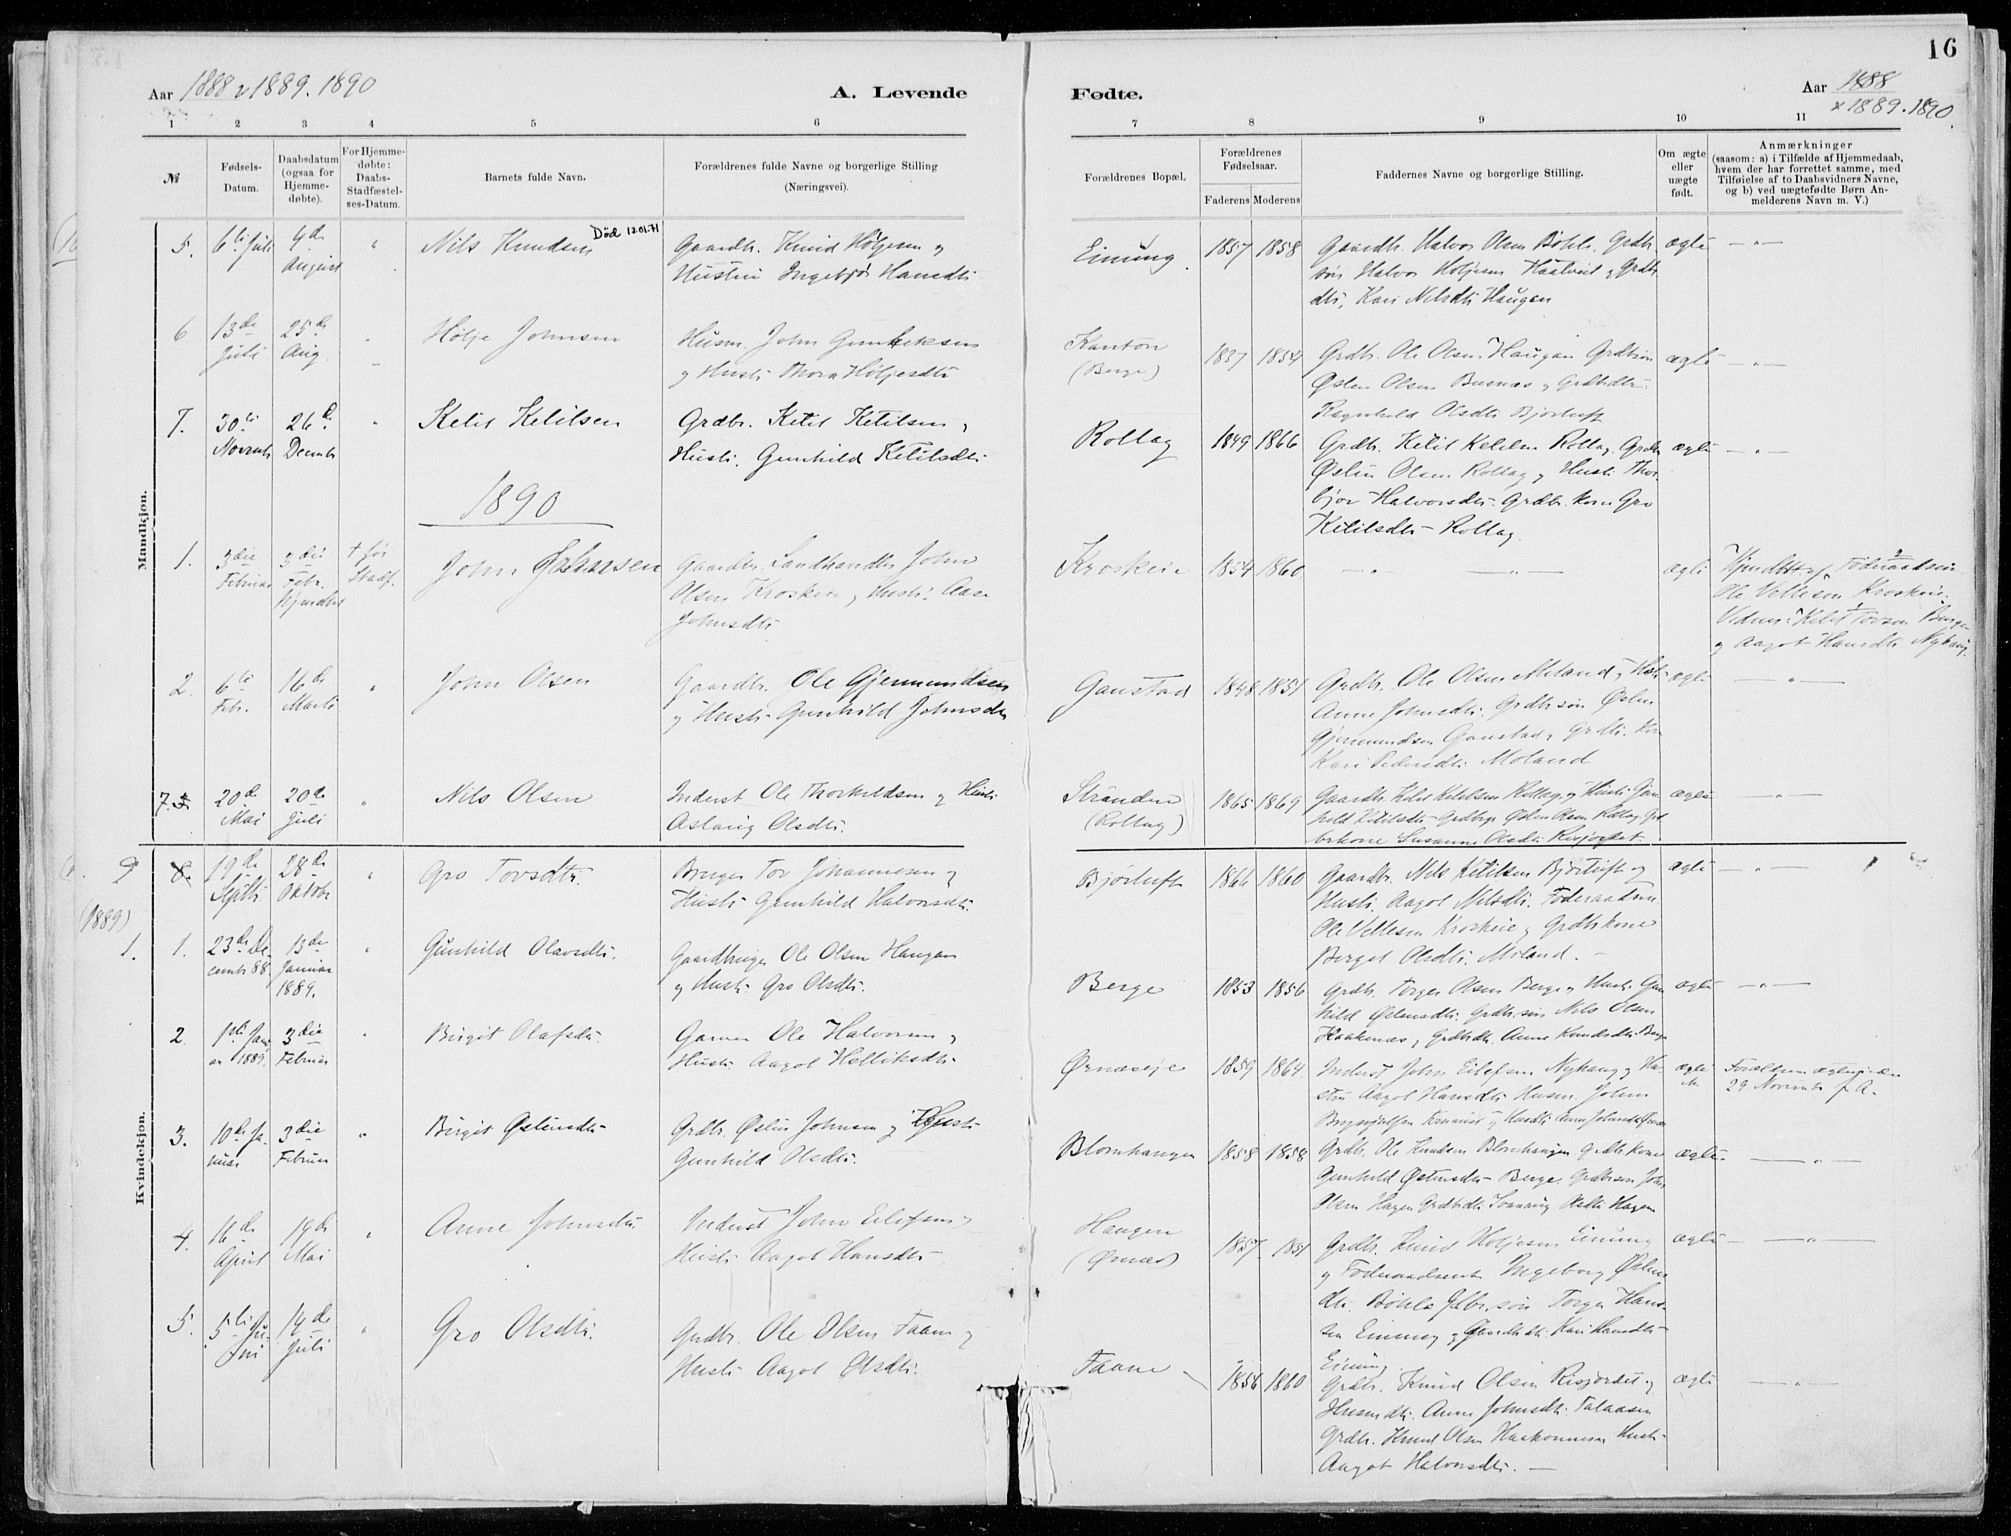 16
Aar 1888 & 1889. 1890
A. Levende
Fødte.
Aar 1888
& 1889. 1890.
1 2 3 4 5 6 7 8 9 10 11
№
Fødsels-
Datum.
Daabsdatum
(ogsaa for
Hjemme-
døbte).
For Hjemme-
døbte:
Daabs-
Stadfæstel-
ses-Datum.
Barnets fulde Navn.
Forældrenes fulde Navne og borgerlige Stilling
(Næringsvei).
Forældrenes Bopæl.
Forældrenes
Fødselsaar.
Faderens Moderens
Faddernes Navne og borgerlige Stilling.
Om ægte
eller
uægte
født.
Anmærkninger
(saasom: a) i Tilfælde af Hjemmedaab,
hvem der har forrettet samme, med
Tilføielse af to Daabsvidners Navne,
og b) ved uægtefødte Børn An-
melderens Navn m. V.)
Mandkjøn.
5. 6te Juli
9de
August
Nils Knudsen
Død 12.01.71
Gaardb. Knud Høljesen og
Hustru Ingebjør Hansdtr
Einung.
1857 1858
Gaardb. Halvor Olsen Bøhle. Grdb.
søn Halvor Holjesen Haatveit og Grdb.
dtr. Kari Nilsdtr Haugen
ægte
6 13de
Juli
25de
Aug.
Holje Johnsen
Husm. John Gunleiksen
og Hustr. Thora Høljesdtr
Kanton
(Berge)
1837 1854
Grdb. Ole Olsen Haugan Grdbsøn
Østen Olsen Busnæs og Grdbdtr.
Ragnhild Olsdtr Bjørtuft
ægte
7. 30te
Novemb
26de
Decemb
Ketil Ketilsen
Grdb. Ketil Ketilsen og
Hustr. Gunhild Ketilsdtr
Rollag
1849 1866
Grdb. Ketil Ketilsen Rollag. Grdb.
Østen Olsen Rollag og Hustr. Thor-
bjør Halvorsdtr. Grdb. kone Gro
Ketilsdtr Rollag.
ægte
1890
1. 3die
Februar
3die
Febr.
hjemdøbt
† før
Stadf.
John Johnsen
Gaardbr. Landhandler John
Olsen Kroskeie og Hustr. Aase
Johnsdtr
Kroskeie
1854 1860
ægte
Hjemdøbt af Føderaadsm.
Ole Vetlesen Kroskeie.
Vidner: Ketil Tovsen
og Aagot Hansdtr
2. 6te
Febr.
16de
Marts
John Olsen
Gaardbr. Ole Gjermundsen
og Hustr. Gunhild Johnsdtr
Gaustad
1848 1851
Grdb. Ole Olsen Miland og Hustr.
Anne Johnsdtr. Grdb. søn Østen
Gjermundsen Gaustad og Grdb. kone
Kari Pedersdtr. Moland
ægte
7. 3. 20de
Mai
20de
Juli
Nils Olsen
Inderst Ole Thorkildsen og Hustr.
Aslaug Olsdtr.
Stranden
(Rollag)
1865 1869
Gaardbr. Ketil Ketilsen Rollag og Hustr. Gun-
hild Ketilsdtr. Grdbrgr Østen Olsen Rollag Grd
brkone Susanne Olsdtr Risjordet.
ægte
Kvindekjøn.
9
8. 19de
Septb
28de
Oktobr
Gro Tovsdtr.
Bruger Tov Johannesen og
Hustr. Gunhild Halvorsdtr.
Bjørtuft
1866 1860
Gaardbr. Nils Ketilsen Bjørtuft og
Hustr. Aagot Nilsdtr. Føderaadsm.
Ole Vetlesen Kroskeie og Grdbkone
Berget Olsdtr. Miland.
ægte
(1889)
1.
1. 23de De-
cemb 88.
13de
Januar
1889.
Gunhild Olavsdtr.
Gaardbruger Ole Olsen Haugan
og Hustr. Gro Olsdtr.
Berge
1853 1856
Grdb. Torger Olsen Berge og Hustr. Gun
hild Østensdtr. Grdb. søn Nils Olsen
Haakenæs og Grdbdtr. Anne Knudsdtr Berge
ægte
2. 1ste Janu-
ar 1889.
3die
Februar
Birgit Olafsdtr.
Garver Ole Halvorsen og
Hustr. Aagot Helliksdtr.
Ørnæseje
1859 1864
Inderst John Eilefsen Nyhaug og Hu-
stru Aagot Hansdtr Husm. John
Brynjulfsen
ægte
29 Novemb f. A.
3. 10de Ja-
nuar
3die
Februar
Birgit Østensdtr
Grdb. Østen Johnsen og Hustr.
Gunhild Olsdtr.
Blomhaugen
1858 1858
Grdb. Ole Knudsen Blomhaugen Grdb. kone
Gunhild Østensdtr Berge. Grdbsøn John
Olsen Hagen Grdbdtr. Olsdtr Hagen
ægte.
4. 16de
April
19de
Mai
Anne Johnsdtr.
Inderst John Eilefsen og
Hustr. Aagot Hansdtr.
Haugen
(Ørnæs)
1857 1851
Grdb. Knud Holjesen Einung
og Føderaadsenke Ingeborg Østens
dtr. Bøhle Gdb. søn Torger Han-
sen Einung og Gaardb. dtr. Kari Hansdtr
Einung.
ægte
5. 5te Ju-
ni
14de
Juli
Gro Olsdtr.
Grdbr. Ole Olsen Faane og
Hustr. Aagot Olsdtr.
Faane
1856 1860
Grdb. Knud Olsen Risjordet og
Husmdtr. Anne Johnsdtr. Talaasen
Grdb. Knud Olsen Haakonnæs Hustr.
Aagot Halvorsdtr.
ægte